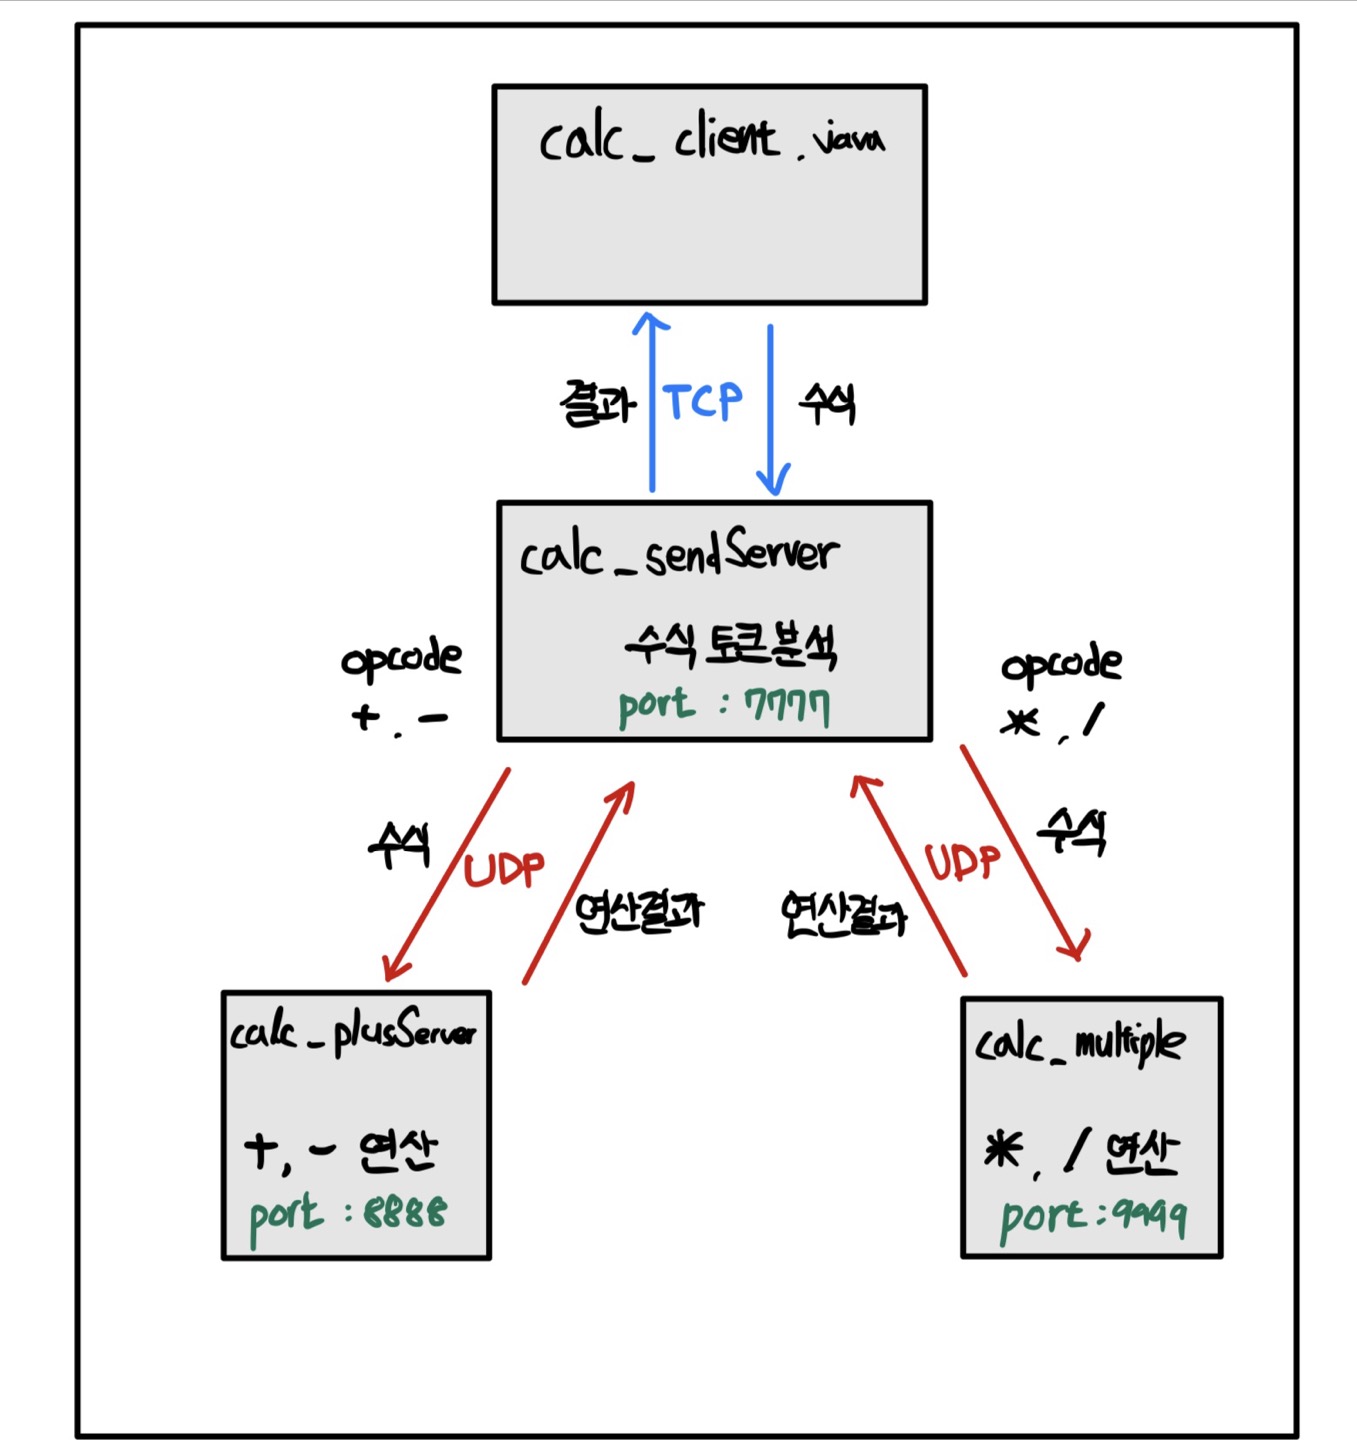 calc_client.java
결과 TCP 수식
calc_sendServer
수식 토큰 분석
port : 7777
opcode
+, -
opcode
*, /
수식 UDP 연산결과
연산결과 UDP 수식
calc_plusServer
+, - 연산
port : 8888
calc_multiple
*, / 연산
port : 9999